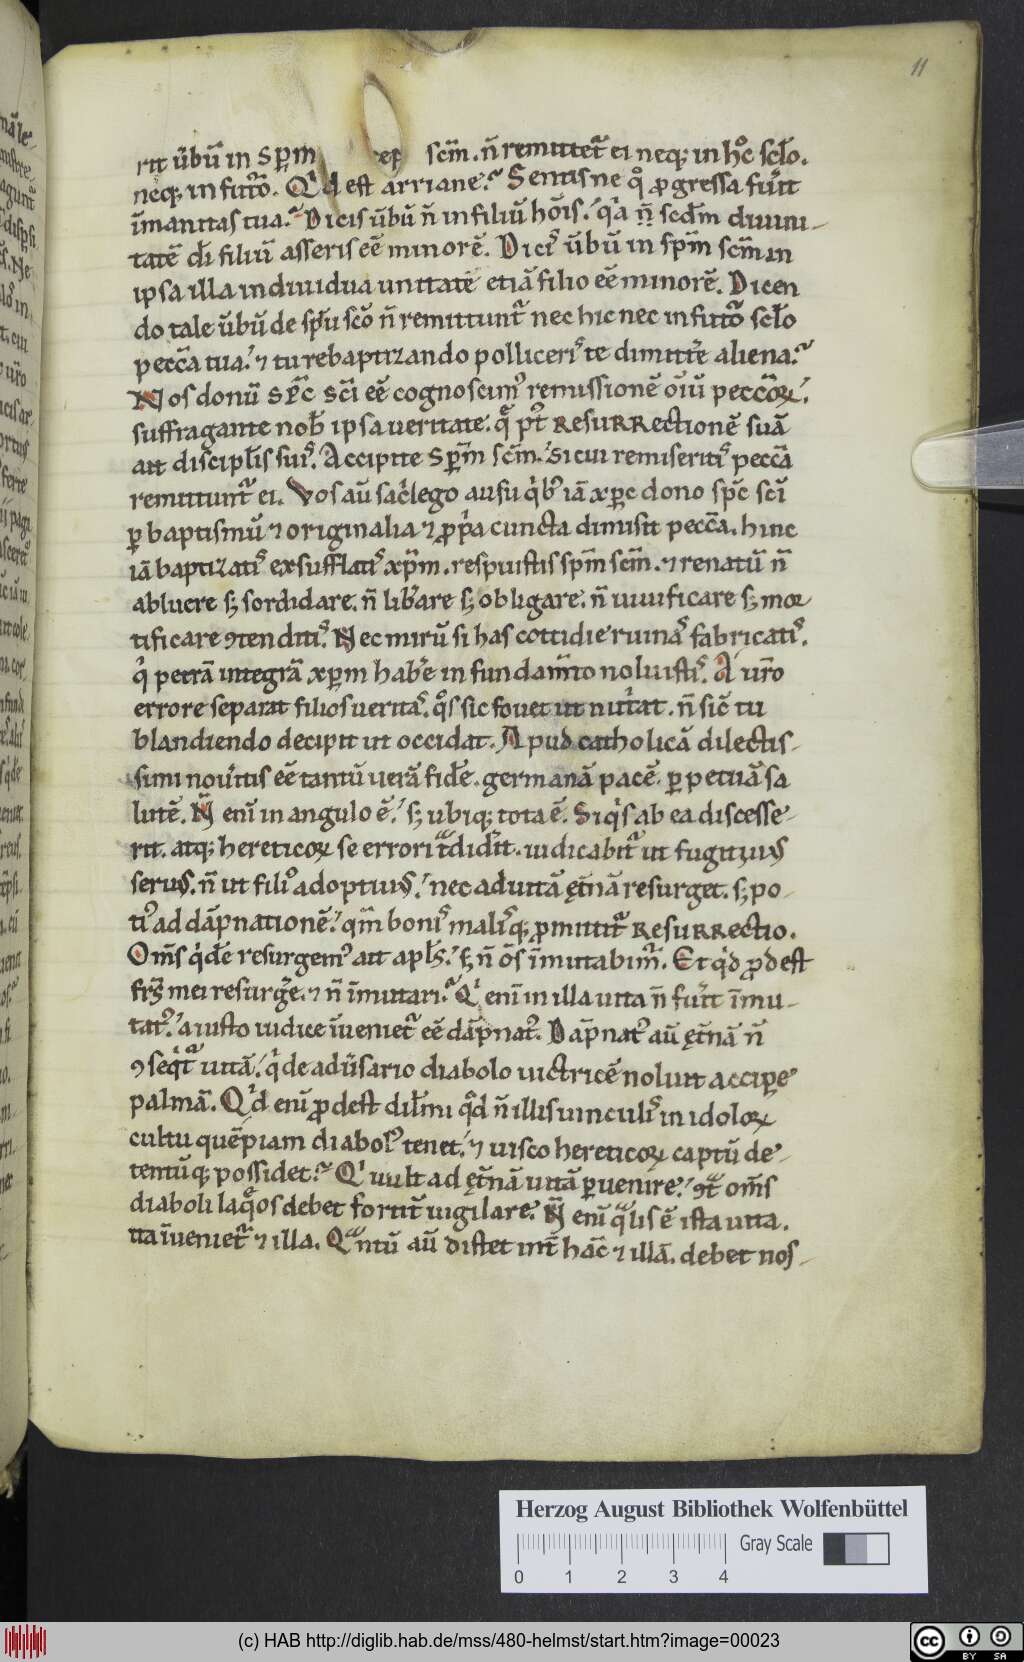 11
rit úbū in spm̄ scm̄. n̄ remittet᷑ ei neq; in hoc scl̄o.
neq; in futuro. Qid est arriane? Sentisne qo ꝓgressa fuerit
īmanitas tua? Dicis úbū n̄ in filiū hōis? qia n̄ scdm̄ diuini-
tatē dī filiū asseris eē minorē. Dicis úbū in spm̄ scm̄ in
ipsa illa indiuidua unitate etiā filio eē minorē. Dicen
do tale úbū de spū scō n̄ remittunt᷑ nec hic nec in futuro scl̄o
peccā tua? ⁊ tu rebaptizando polliceris te dimittere aliena?
Nos donū spc̄ sc̄i eē cognoscimꝰ remissionē oīū peccōꝝ.
suffragante nob̄ ipsa ueritate. q̄ pt̄ Resurrectionē suā
ait discipl̄is suis. Accipite spm̄ scm̄. Si cui remiseritis peccā
remittunt᷑ ei. Vos aū sac̄lego ausu qibꝰ iā xp̄c dono spc̄ sc̄i
ꝑ baptismū ⁊ originalia ⁊ ꝓpia cuncta dimisit peccā. hinc
iā baptizatis exsufflatis xp̄m. respuistis spm̄ scm̄. ⁊ renatū n̄
abluere sꝫ sordidare. n̄ lib̄are sꝫ obligare. n̄ uiuificare sꝫ mor
tificare ꝯtenditis. Nec mirū si has cottidie ruinas fabricatis.
qi petrā integrā xp̄m hab̄e in fundam̄to noluistis. A ur̄o
errore separat filios ueritas. qos sic fouet ut nutriat. n̄ sic tu
blandiendo decipit ut occidat. Apud catholicā dilectis-
simi nouitis eē tantū uerā fidē. germanā pacē. ꝑpetuā sa
lutē. N̄ enī in angulo ē. sꝫ ubiq; tota ē. Si qis ab ea discesse-
rit. atq; hereticoꝝ se errori tradidit. iudicabit᷑ ut fugitiuus
seruus. n̄ ut filiꝰ adoptiuus. nec ad uitā ęt̄nā resurget. sꝫ po-
tiꝰ ad dāpnationē. qm̄ bonis malisq; ꝓmittit᷑ Resurrectio.
Om̄s qidē resurgemꝰ ait apl̄s. sꝫ n̄ ōs īmutabim᷑. Et qid ꝓdest
frs̄ mei resurgere. ⁊ n̄ īmutari? Qi enī in illa uita n̄ fuerit īmu-
tatꝰ. a iusto iudice īueniet᷑ eē dāpnatꝰ. Dāpnatꝰ aū ęt̄nā n̄
ꝯseqit᷑ uitā. qi de adu̅sario diabolo uictricē noluit accipe
palmā. Qid enī ꝓdest dil̄mi qd̄ n̄ illis uinculis in idoloꝝ
cultu quēpiam diabolꝰ tenet. ⁊ uisco hereticoꝝ captū de-
tentūq; possidet? Qi uult ad ęt̄nā uitā ꝑuenire. ꝯtra om̄s
diaboli laqeos debet fortit̄ uigilare. N̄ enī qalis ē ista uita.
ita īueniet᷑ ⁊ illa. Qantū aū distet int̄ hāc ⁊ illā. debet nos-
Herzog August Bibliothek Wolfenbüttel
Gray Scale
0 1 2 3 4
(c) HAB http://diglib.hab.de/mss/480-helmst/start.htm?image=00023
cc BY SA